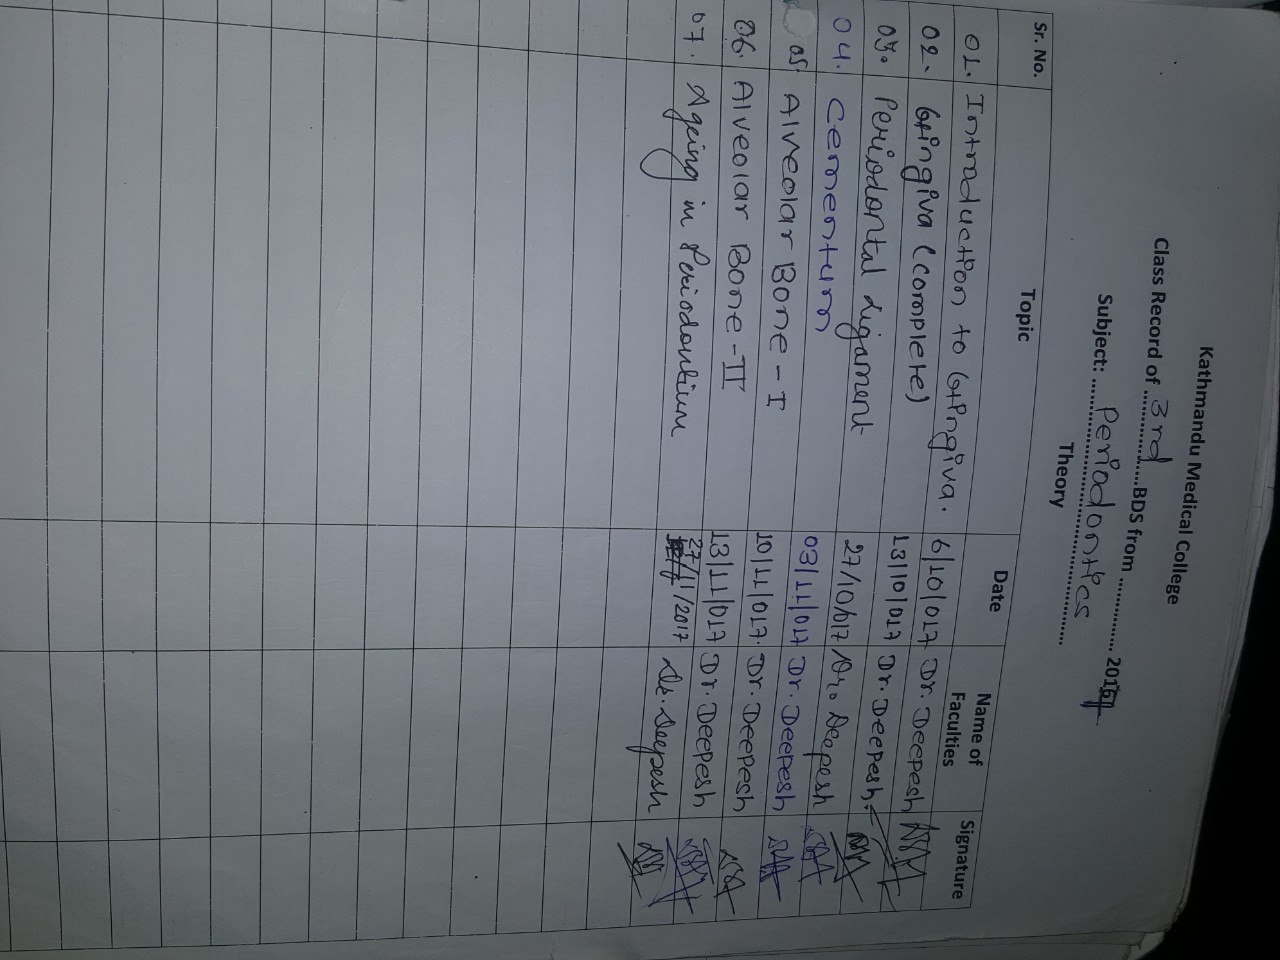 Kathmandu Medical College
Class Record of ........3rd........BDS from ................ 2017
Subject: ........Periodontics........
Theory
Sr. No. Topic Date Name of Faculties Signature
01. Introduction to Gingiva. 6/10/017 Dr. Deepesh
02. Gingiva (complete) 13/10/017 Dr. Deepesh.
03. Periodontal Ligament 27/10/017 Dr. Deepesh
04. Cementum 03/11/017 Dr. Deepesh
05. Alveolar Bone - I 10/11/017. Dr. Deepesh
06. Alveolar Bone - II 13/11/017 Dr. Deepesh
07. Ageing in Periodontium 27/11/2017 Dr. Deepesh